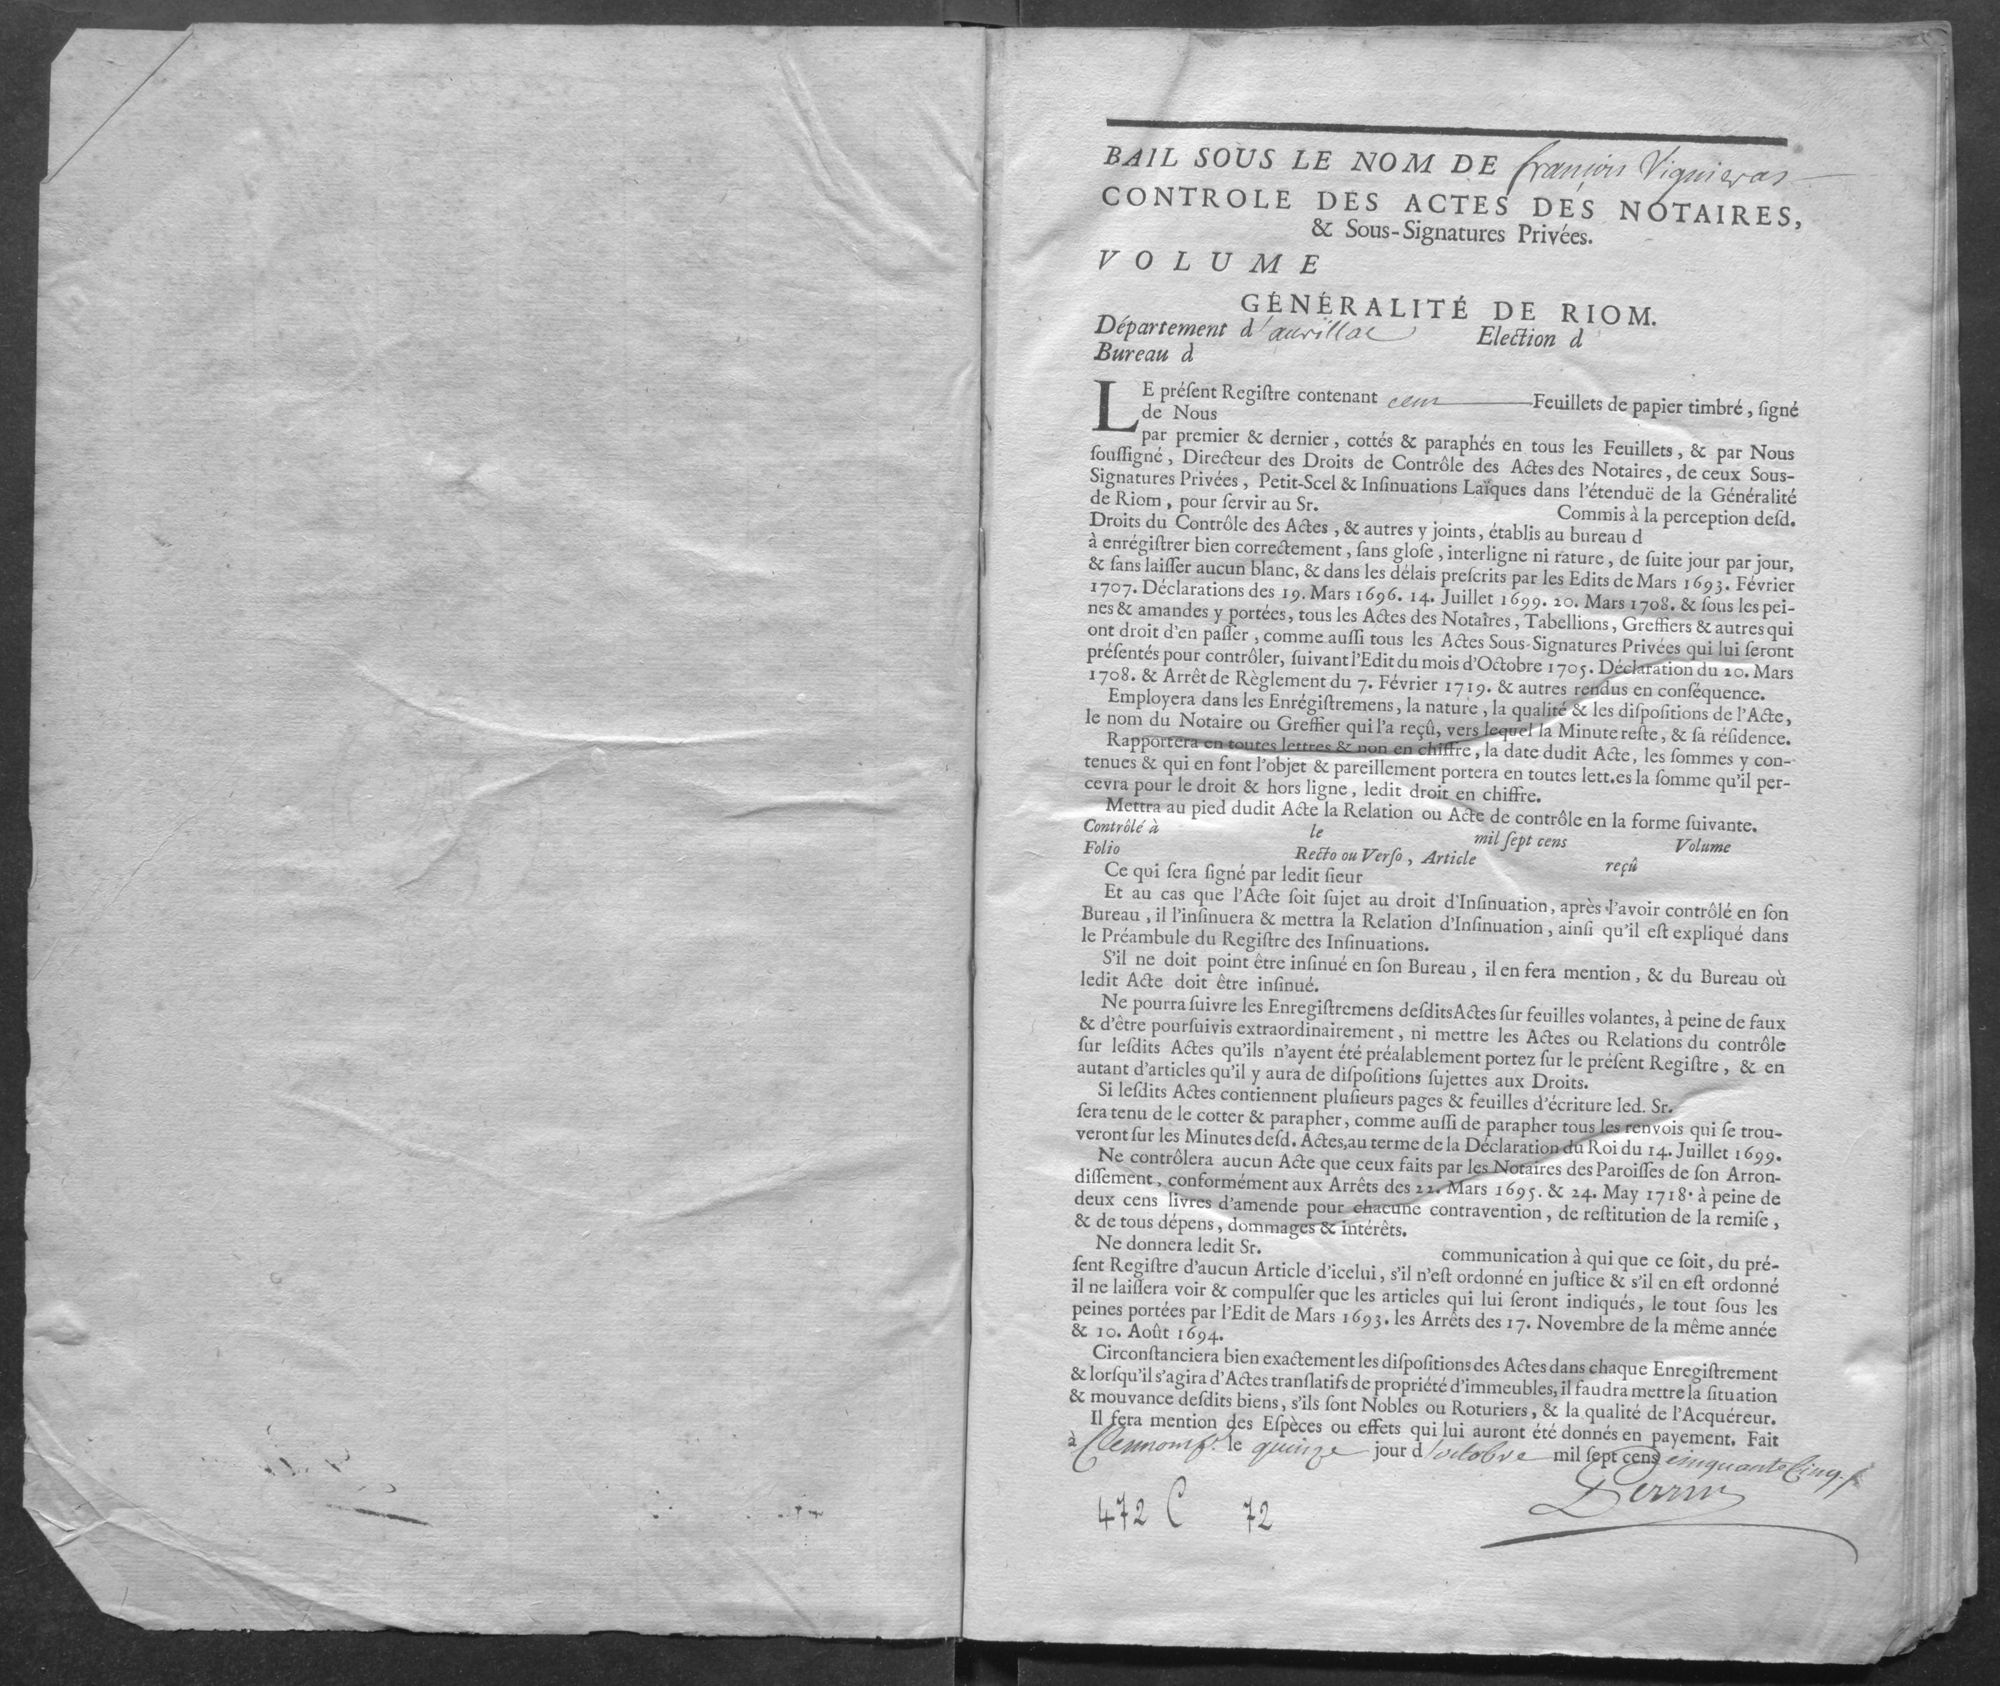 BAIL SOUS LE NOM DE françois Vignieras
CONTROLE DES ACTES DES NOTAIRES,
& Sous-Signatures Privées.
VOLUME
GÉNÉRALITÉ DE RIOM.
Département d'aurillac Election d
Bureau d
LE préſent Regiſtre contenant cent Feuillets de papier timbré, ſigné
de Nous
par premier & dernier, cottés & paraphés en tous les Feuillets, & par Nous
ſouſſigné, Directeur des Droits de Contrôle des Actes des Notaires, de ceux Sous-
Signatures Privées, Petit-Scel & Inſinuations Laïques dans l'étenduë de la Généralité
de Riom, pour ſervir au Sr. Commis à la perception deſd.
Droits du Contrôle des Actes, & autres y joints, établis au bureau d
à enrégiſtrer bien correctement, ſans gloſe, interligne ni rature, de ſuite jour par jour,
& ſans laiſſer aucun blanc, & dans les délais preſcrits par les Edits de Mars 1693. Février
1707. Déclarations des 19. Mars 1696. 14. Juillet 1699. 20. Mars 1708. & ſous les pei-
nes & amandes y portées, tous les Actes des Notaires, Tabellions, Greffiers & autres qui
ont droit d'en paſſer, comme auſſi tous les Actes Sous-Signatures Privées qui lui ſeront
préſentés pour contrôler, ſuivant l'Edit du mois d'Octobre 1705. Déclaration du 20. Mars
1708. & Arrêt de Règlement du 7. Février 1719. & autres rendus en conſéquence.
Employera dans les Enrégiſtremens, la nature, la qualité & les diſpoſitions de l'Acte,
le nom du Notaire ou Greffier qui l'a reçû, vers lequel la Minute reſte, & ſa réſidence.
Rapportera en toutes lettres & non en chiffre, la date dudit Acte, les ſommes y con-
tenues & qui en font l'objet & pareillement portera en toutes lett.es la ſomme qu'il per-
cevra pour le droit & hors ligne, ledit droit en chiffre.
Mettra au pied dudit Acte la Relation ou Acte de contrôle en la forme ſuivante.
Contrôlé à le mil ſept cens Volume
Folio Recto ou Verſo, Article reçû
Ce qui ſera ſigné par ledit ſieur
Et au cas que l'Acte ſoit ſujet au droit d'Inſinuation, après l'avoir contrôlé en ſon
Bureau, il l'inſinuera & mettra la Relation d'Inſinuation, ainſi qu'il eſt expliqué dans
le Préambule du Regiſtre des Inſinuations.
S'il ne doit point être inſinué en ſon Bureau, il en fera mention, & du Bureau où
ledit Acte doit être inſinué.
Ne pourra ſuivre les Enregiſtremens deſdits Actes ſur feuilles volantes, à peine de faux
& d'être pourſuivis extraordinairement, ni mettre les Actes ou Relations du contrôle
ſur leſdits Actes qu'ils n'ayent été préalablement portez ſur le préſent Regiſtre, & en
autant d'articles qu'il y aura de diſpoſitions ſujettes aux Droits.
Si leſdits Actes contiennent pluſieurs pages & feuilles d'écriture led. Sr.
ſera tenu de le cotter & parapher, comme auſſi de parapher tous les renvois qui ſe trou-
veront ſur les Minutes deſd. Actes, au terme de la Déclaration du Roi du 14. Juillet 1699.
Ne contrôlera aucun Acte que ceux faits par les Notaires des Paroiſſes de ſon Arron-
diſſement, conformément aux Arrêts des 22. Mars 1695. & 24. May 1718. à peine de
deux cens livres d'amende pour chacune contravention, de reſtitution de la remiſe,
& de tous dépens, dommages & intérêts.
Ne donnera ledit Sr. communication à qui que ce ſoit, du pré-
ſent Regiſtre d'aucun Article d'icelui, s'il n'eſt ordonné en juſtice & s'il en eſt ordonné
il ne laiſſera voir & compulſer que les articles qui lui ſeront indiqués, le tout ſous les
peines portées par l'Edit de Mars 1693. les Arrêts des 17. Novembre de la même année
& 10. Août 1694.
Circonſtanciera bien exactement les diſpoſitions des Actes dans chaque Enregiſtrement
& lorſqu'il s'agira d'Actes tranſlatifs de propriété d'immeubles, il faudra mettre la ſituation
& mouvance deſdits biens, s'ils ſont Nobles ou Roturiers, & la qualité de l'Acquéreur.
Il fera mention des Eſpèces ou effets qui lui auront été donnés en payement. Fait
à Clermont fd. le quinze jour d'octobre mil ſept cens cinquante Cinq
Perrin
472 C 72